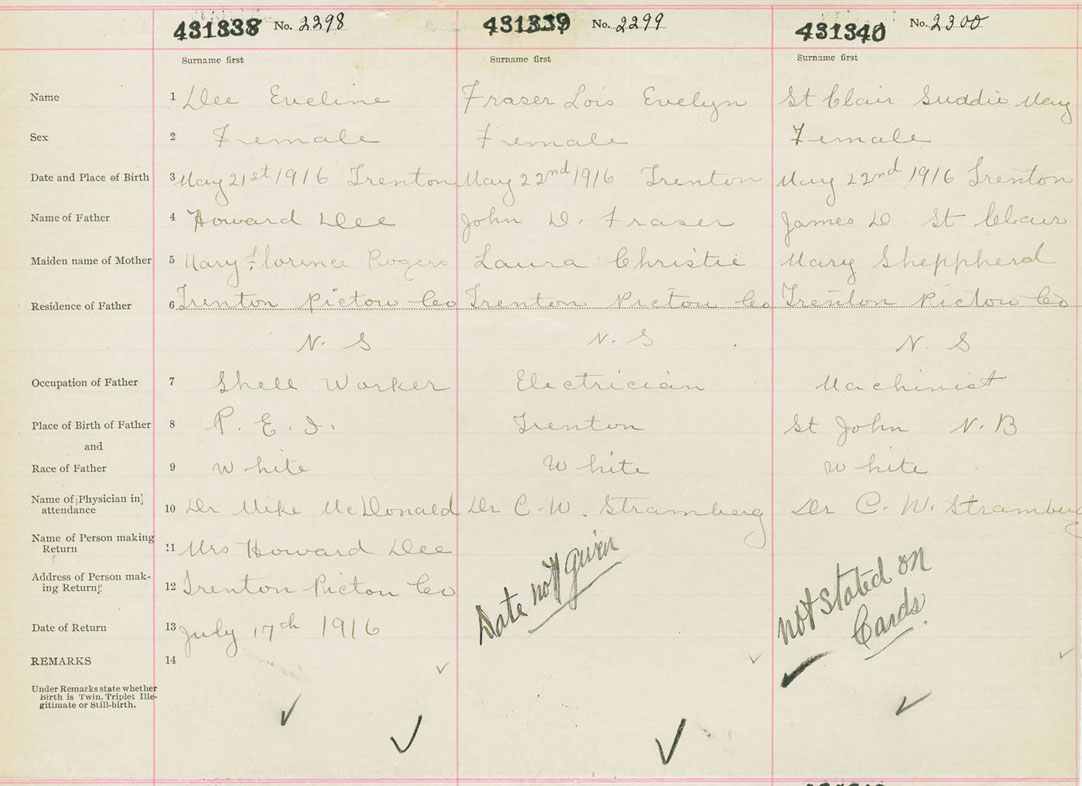 431338 No. 2298 431339 No. 2299 431340 No. 2300
Surname first Surname first Surname first
Name 1 Dee Eveline Fraser Lois Evelyn St Clair Suddie May
Sex 2 Female Female Female
Date and Place of Birth 3 May 21st 1916 Trenton May 22nd 1916 Trenton May 22nd 1916 Trenton
Name of Father 4 Howard Dee John D. Fraser James D St Clair
Maiden name of Mother 5 Mary Florence Rogers Laura Christie Mary Sheppherd
Residence of Father 6 Trenton Pictou Co Trenton Pictou Co Trenton Pictou Co
N. S N. S N. S
Occupation of Father 7 Shell Worker Electrician Machinist
Place of Birth of Father 8 P. E. I. Trenton St John N. B
and
Race of Father 9 White White White
Name of [Physician in]
attendance 10 Dr Mike McDonald Dr C. W. Stramberg Dr C. W. Stramberg
Name of Person making
Return 11 Mrs Howard Dee
Address of Person mak-
ing Return 12 Trenton Pictou Co
Date not given
not stated on
Cards
Date of Return 13 July 17th 1916
REMARKS 14
Under Remarks state whether
Birth is Twin, Triplet Ille-
gitimate or Still-birth.